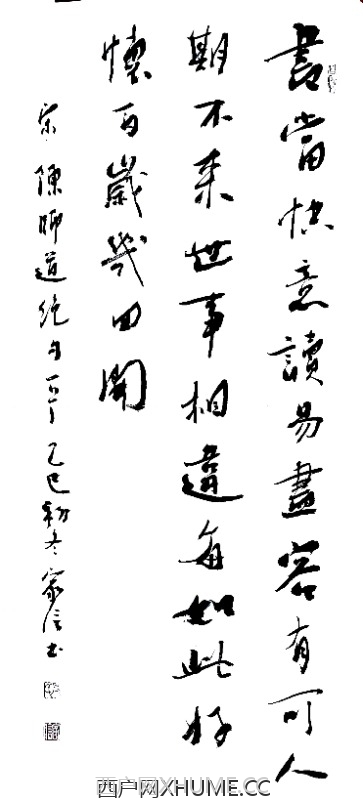 書當快意讀易盡客有可人
期不來世事相違每如此好
懷百歲幾回開
宋陳師道絕句一首乙巳初冬家信书
西户网XHUME.CC